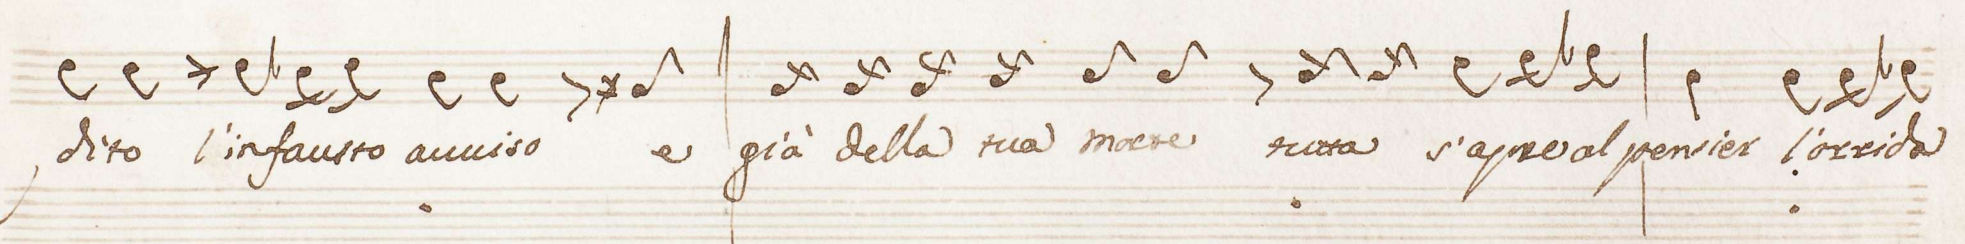 dito l'infausto auuiso e già della tua morte tutta s'apre al pensier l'orrida